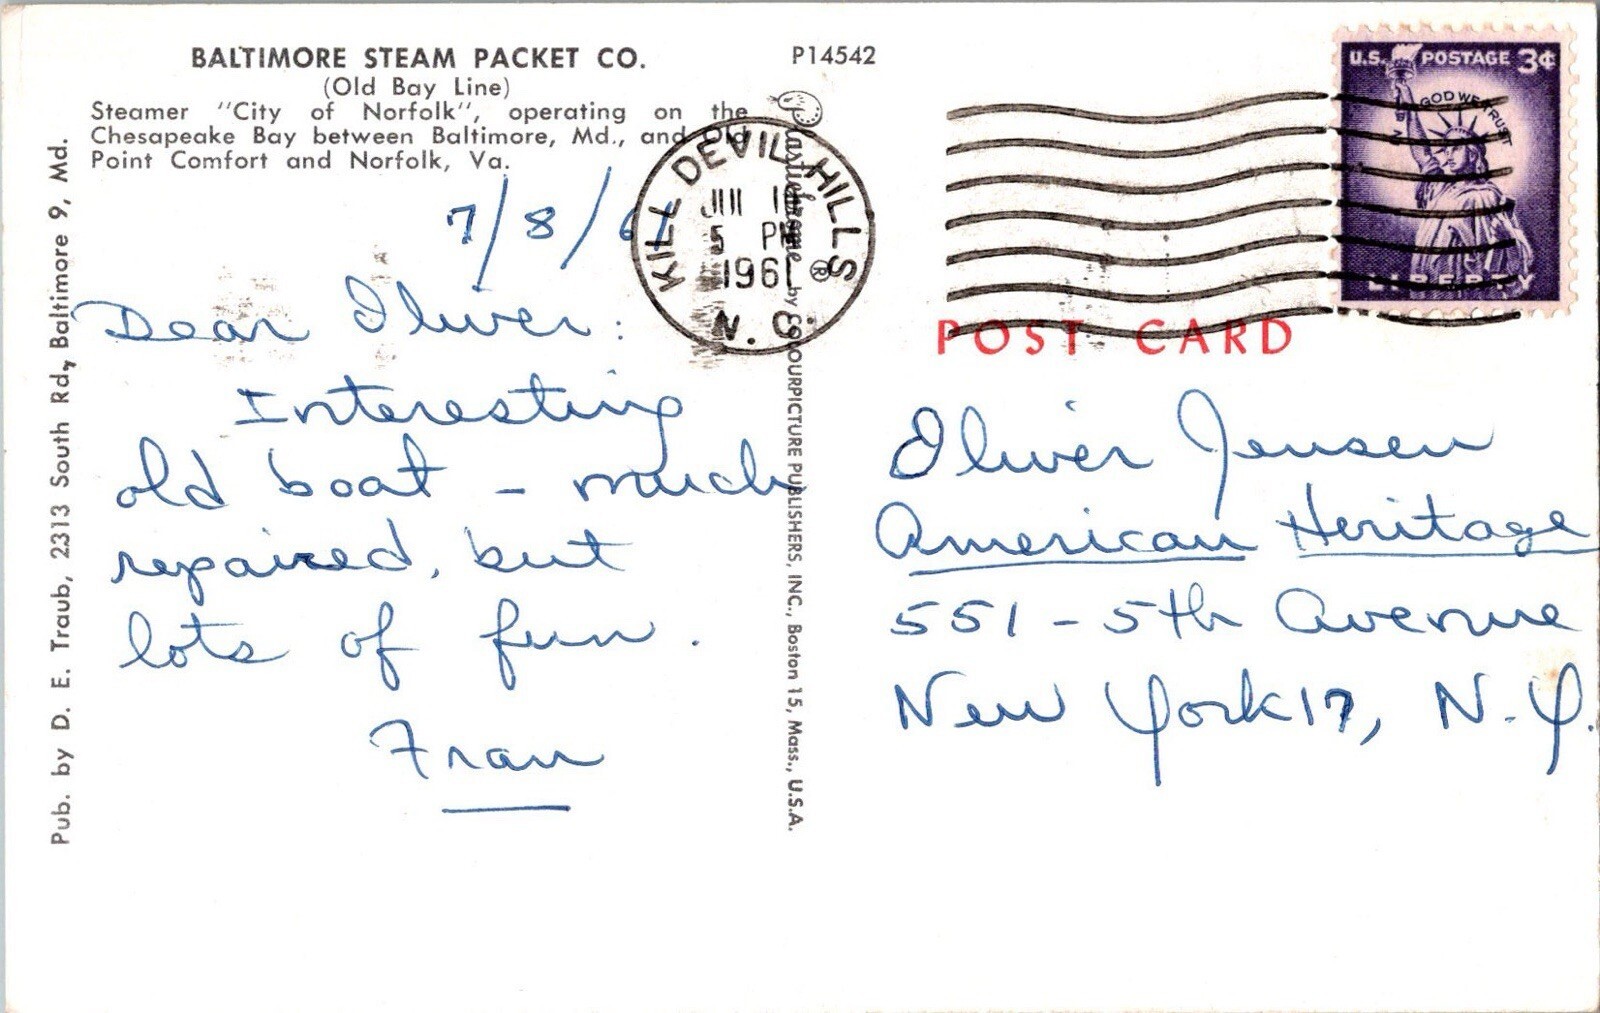 BALTIMORE STEAM PACKET CO.
(Old Bay Line)
Steamer "City of Norfolk", operating on the
Chesapeake Bay between Baltimore, Md., and Old
Point Comfort and Norfolk, Va.
P14542
7/8/61
Dear Oliver:
Interesting
old boat - much
repaired, but
lots of fun.
Fran
Pub. by D. E. Traub, 2313 South Rd., Baltimore 9, Md.
Plastichrome ® by COLOURPICTURE PUBLISHERS, INC., Boston 15, Mass., U.S.A.
KILL DEVIL HILLS
5 PM
1961
N. C.
U.S. POSTAGE 3¢
IN GOD WE TRUST
LIBERTY
POST CARD
Oliver Jensen
American Heritage
551 - 5th Avenue
New York 17, N.Y.